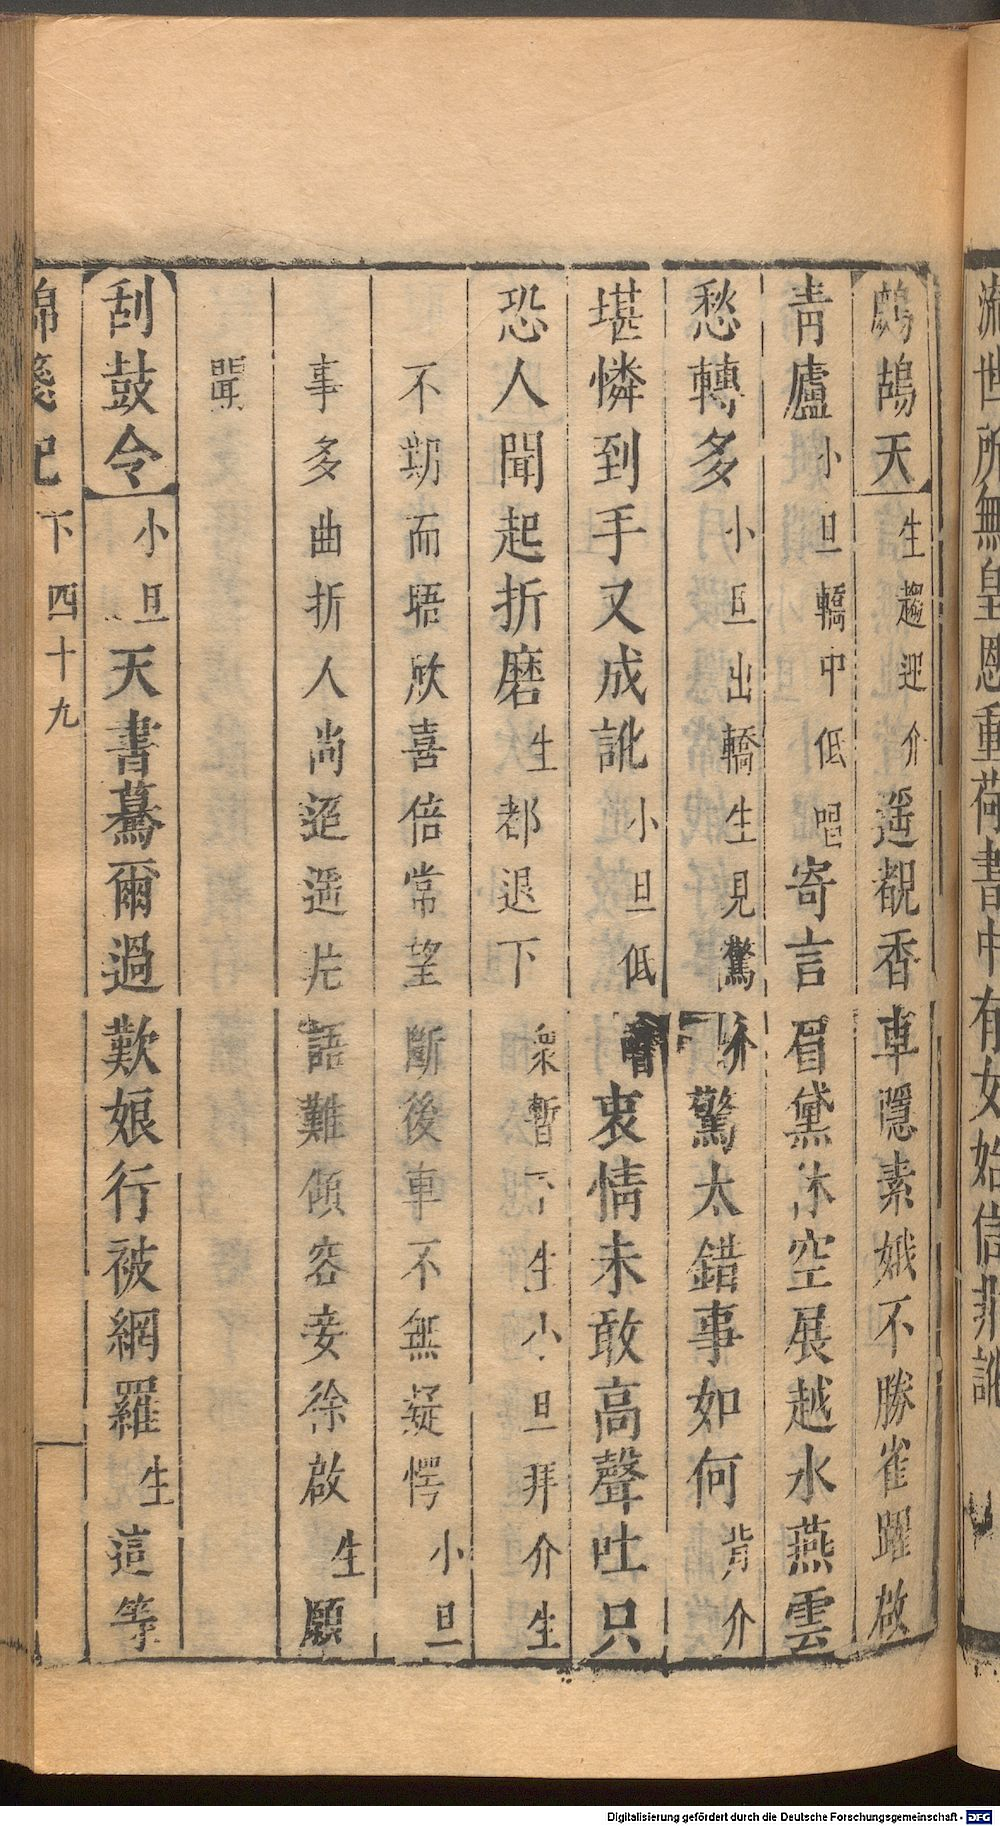 瀨世所無皇恩重荷書中有女始信非訛
鷓鴣天生趨迎介遥覩香車隱素娥不勝雀躍啟
青廬小旦轎中低唱寄言眉黛休空展越水燕雲
愁轉多小旦出轎生見驚介驚太錯事如何背介
堪憐到手又成訛小旦低衷情未敢高聲吐只
恐人聞起折磨生都退下衆暫下生小旦拜介生
不期而晤欣喜倍常望斷後車不無疑愕小旦
事多曲折人尚迢遥片語難傾容妾徐啟生願
聞
刮鼓令小旦天書驀爾過歎娘行被網羅生這等
錦箋記 下 四十九
Digitalisierung gefördert durch die Deutsche Forschungsgemeinschaft - DFG